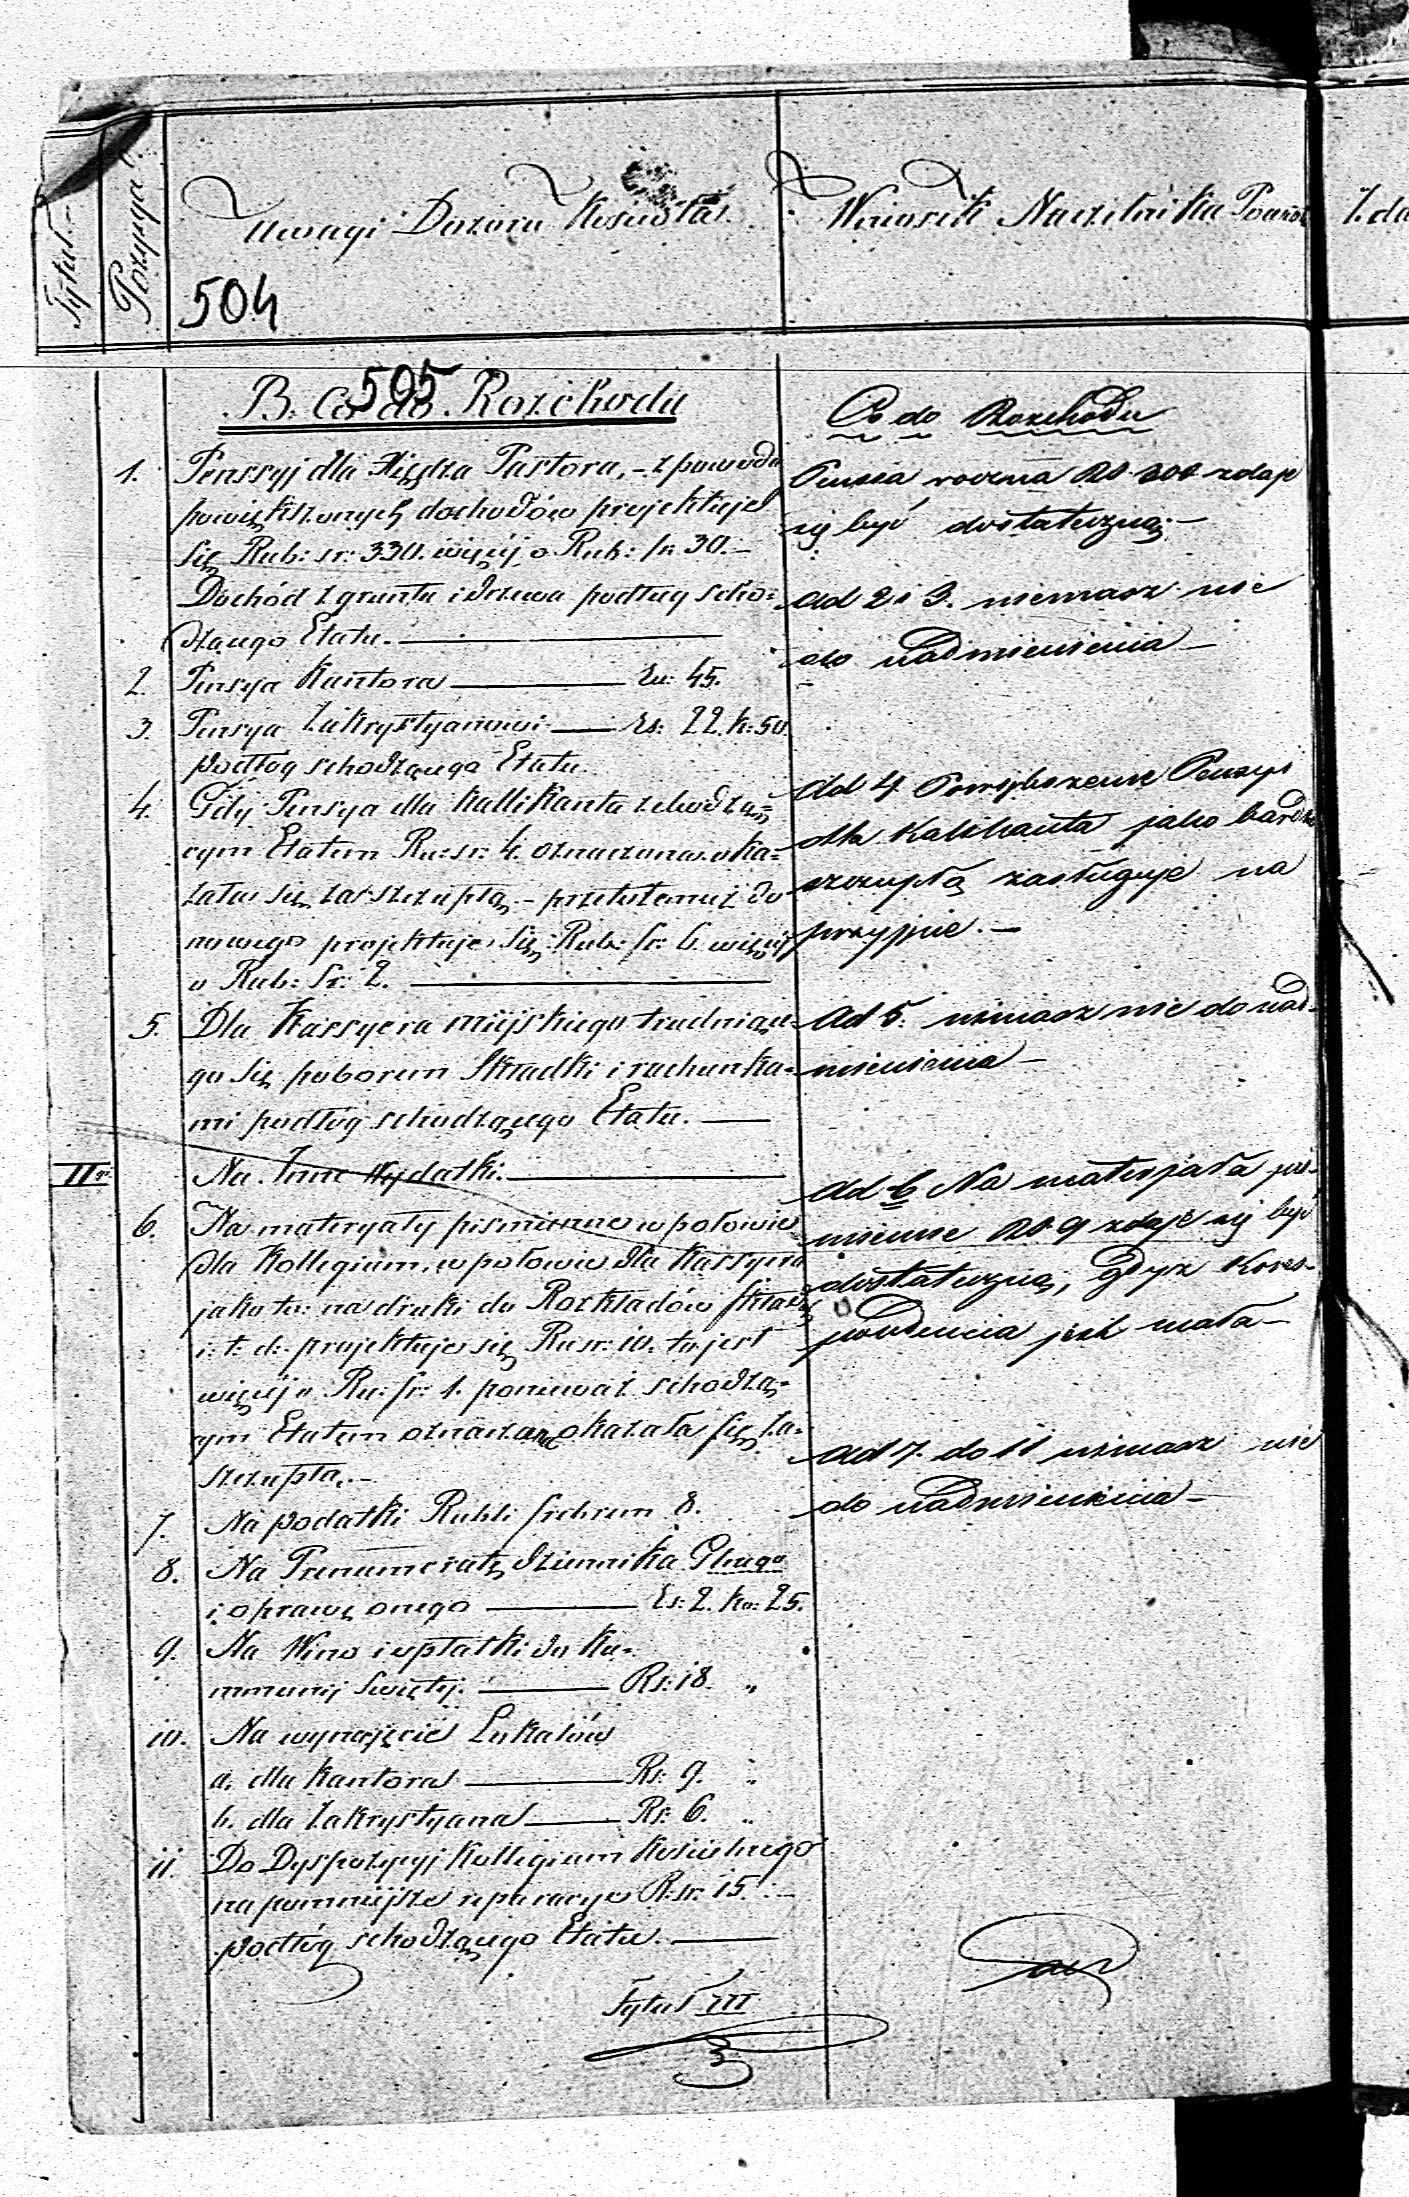 Tytuł
Pozycya
Uwagi Dozoru Kościoła
Wniosek Naczelnika Powiat
Zda
504
505
B. Co do Rozchodu
1. Penssyj dla Xiędza Pastora, – z powodu
powiększonych dochodów projektuje
się Rub: sr: 330. więcéj o Rub: sr 30. –
Dochód z gruntu i drzewa podług scho=
dzącego Etatu. —
2. Pensya Kantora — Rs: 45.
3. Pensya Zakrystyanowi — Rs: 22. k: 50.
podłog schodzącego Etatu.
4. Gdy Pensya dla Kallikanta schodzą=
cym Etatem Ru: sr: 4. oznaczona oka=
zała się za szczupłą – przeto temuż do
nowego projektuje się Rub: sr: 6. więcéj
o Rub: Sr: 2. —
5. Dla Kassyera miejskiego trudniące=
go się poborem Składki i rachunka=
mi podłóg schodzącego Etatu. —
II Na Inne Wydatki. —
6. Na materyały piśmienne w połowie
dla Kollegium, w połowie dla Kassyera
jako to: na druki do Rozkładów Skład
i: t: d: projektuje się Ru sr: 10. to jest
więcéj o Ru: sr: 1. ponieważ schodzą=
cym Etatem oznaczona okazała się za=
szczupła. –
7. Na podatki Rubli srebrem 8.
8. Na Prenumeratę dziennika
i oprawę onego — Rs: 2. ko: 25.
9. Na Wino i opłatki do Ko=
mmunij Swiętej. — Rs: 18. „
10. Na wynajęcie Lokalów
a. dla Kantora — Rs: 9. „
b. dla Zakrystyana — Rs: 6. „
11. Do Dyspozycyj Kollegium Kościelnego
na pomniejsze reparacye R. sr: 15. –
podług schodzącego Etatu. —
Tytuł III
Co do Rozchodu
Pensia roczna RS 300 zdaje
się być dostateczną. –
Ad 2 i 3. niemasz nic
do nadmienienia –
Ad 4 Powiększenie Pensyi
dla Kalikanta jako bardzo
szczupłą zasługuje na
przyjęcie. –
Ad 5. niemasz nic do nad-
mienienia –
Ad 6 Na materjała piś-
mienne RS 9 zdaje się być
dostateczną, gdyż Kores-
pondencia jest mała –
Ad 7. do 11 niemasz nic
do nadmienienia –